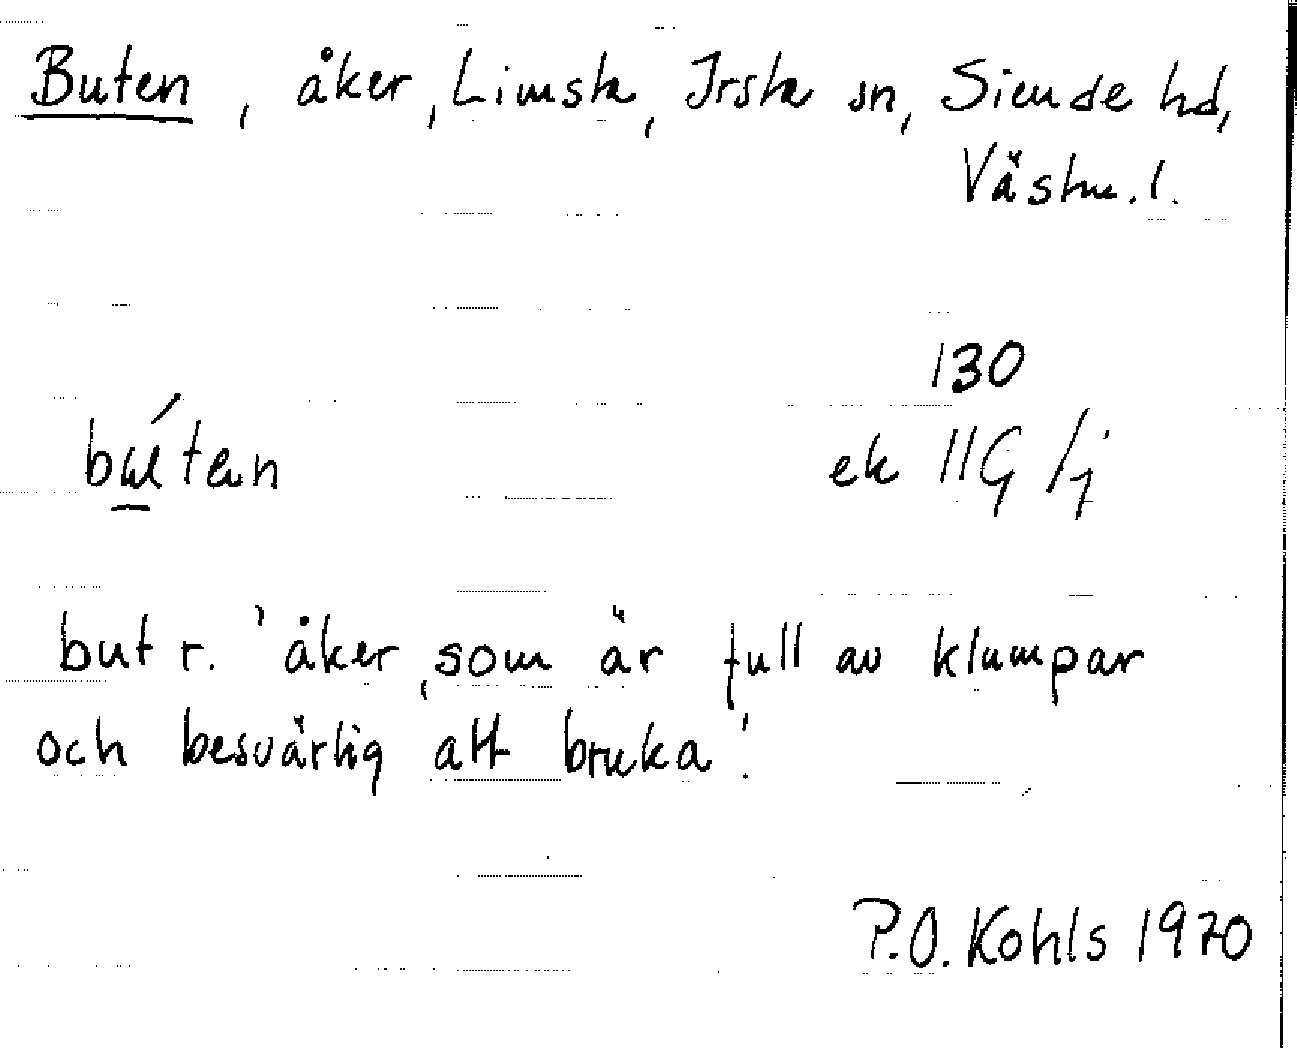 Buten, åker, Limsta, Irsta sn, Siende hd,
Västm. l.
130
bú̲ten
ek 11G/j
but r. 'åker, som är full av klumpar
och besvärlig att bruka'.
P.O. Kohls 1970